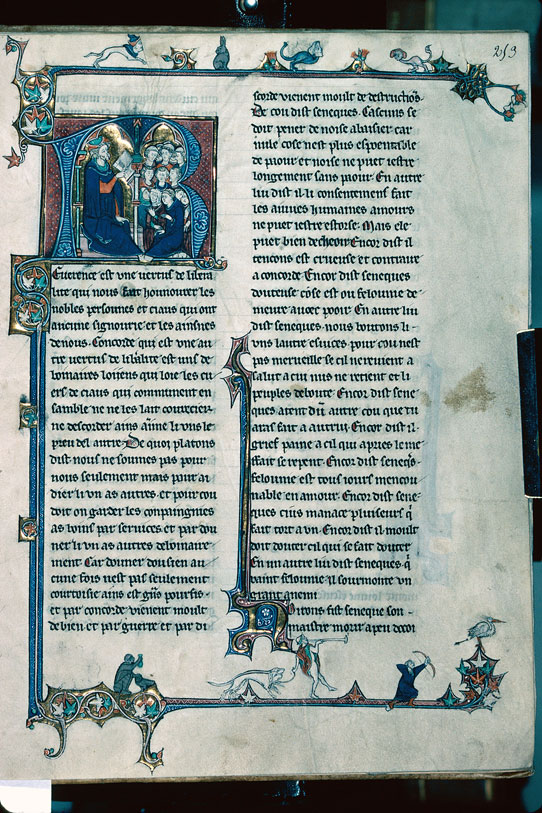 253
Reuerence est vne uertus de liberalite
lite qui nous fait honnourer les
nobles personnes et ciaus qui ont
ancune signourie et les ainsnes
de nous. Concorde qui est vne au
tre uertus de liberalite est uns de
loiiens qui loie les cu
ers de ciaus qui communent en
samble ne ne les lait courecier.
ne descorder ains aime li vns le
preu del autre. De quoi platons
dist nous ne sonmes pas pour
nous seulement mais pour ai
dier li vn as autres. et pour cou
doit on garder les conpaingnies
as boins par seruices. et par dou
ner li vn as autres debonaire
ment. Car douner dou sien au
cune fois nest pas seulement
courtoisie ains est grans pourfis.
et par concorde vienent moult
de bien et par guerre et par di
scorde vienent moult de destruchons.
De cou dist seneques. Cascuns se
doit pener de noise abaisier car
nule cose nest plus
de paour et noise ne puet iestre
longement sans paour. En autre
liu dist il. li consentemens fait
les humaines amours
ne puet iestre estorse. Mais ele
puet bien decheoir. Encor dist il
tencons est crueuse et contraire
a concorde. Encor dist seneques
douteuse cose est ou felounie de
meure auoec pooir. En autre liu
dist seneques. nous
vns lautre pour cou nest
pas merueille se cil ne reuient a
salut a cui nus ne retient et li
peuples deboute. Encor dist sene
ques atent dun autre cou que tu
aras fait a autrui. Encor dist il
grief paine a cil qui apries le me
ffait se repent. Encor dist seneques
felounie est tous iours mencou
nable en amour. Encor dist sene
ques cius manace pluiseurs q
fait tort a vn. Encor dist il moult
doit douter cil qui se fait douter
En un autre liu dist seneques. q
vaint felounie il sourmonte vn
grant anemi
Noirons fist seneque son
maistre morir a peu docoi